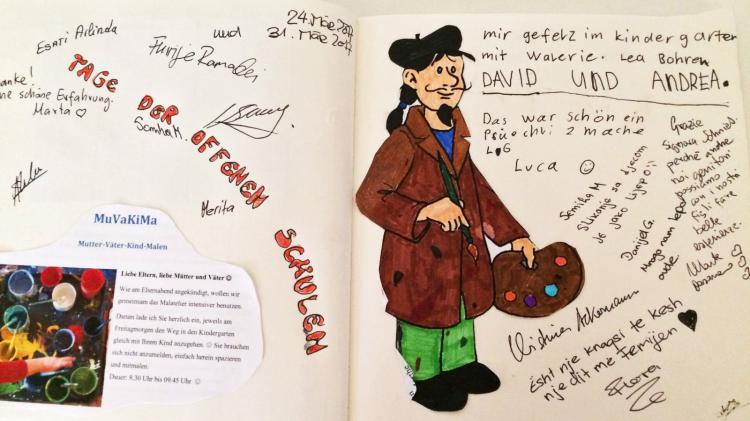 24. Mär 2017
und 31. Mär 2017
Esati Arlinda
Danke!
Marta ♡
TAGE
DER
OFFENEN
SCHULEN
Semiha M.
Merita
MuVaKiMa
Mutter-Väter-Kind-Malen
Liebe Eltern, liebe Mütter und Väter ☺
Wie am Elternabend angekündigt, wollen wir
gemeinsam das Malatelier intensiver benutzen.
Darum lade ich Sie herzlich ein, jeweils am
Freitagmorgen den Weg in den Kindergarten
gleich mit Ihrem Kind anzugehen. ☺ Sie brauchen
sich nicht anzumelden, einfach herein spazieren
und mitmalen.
Dauer: 8.30 Uhr bis 09.45 Uhr ☺
mir gefelz im kindergarten
mit Walerie. Lea Bohren
DAVID UND ANDREA.
Das war schön ein
Psüochli z mache
LG
Luca ☺
Semiha M
Slikanje sa djecom
je jako lijepo!!
Danijela G.
Mnogo nam lepo
ovde.
Grazie
Signora Schmid.
perché anche
noi genitori
possiamo
con i nostri
figli fare
belle
esperienze.
Ackermann
Ësht nje knaqsi te kesh
nje dit me femijen ♥